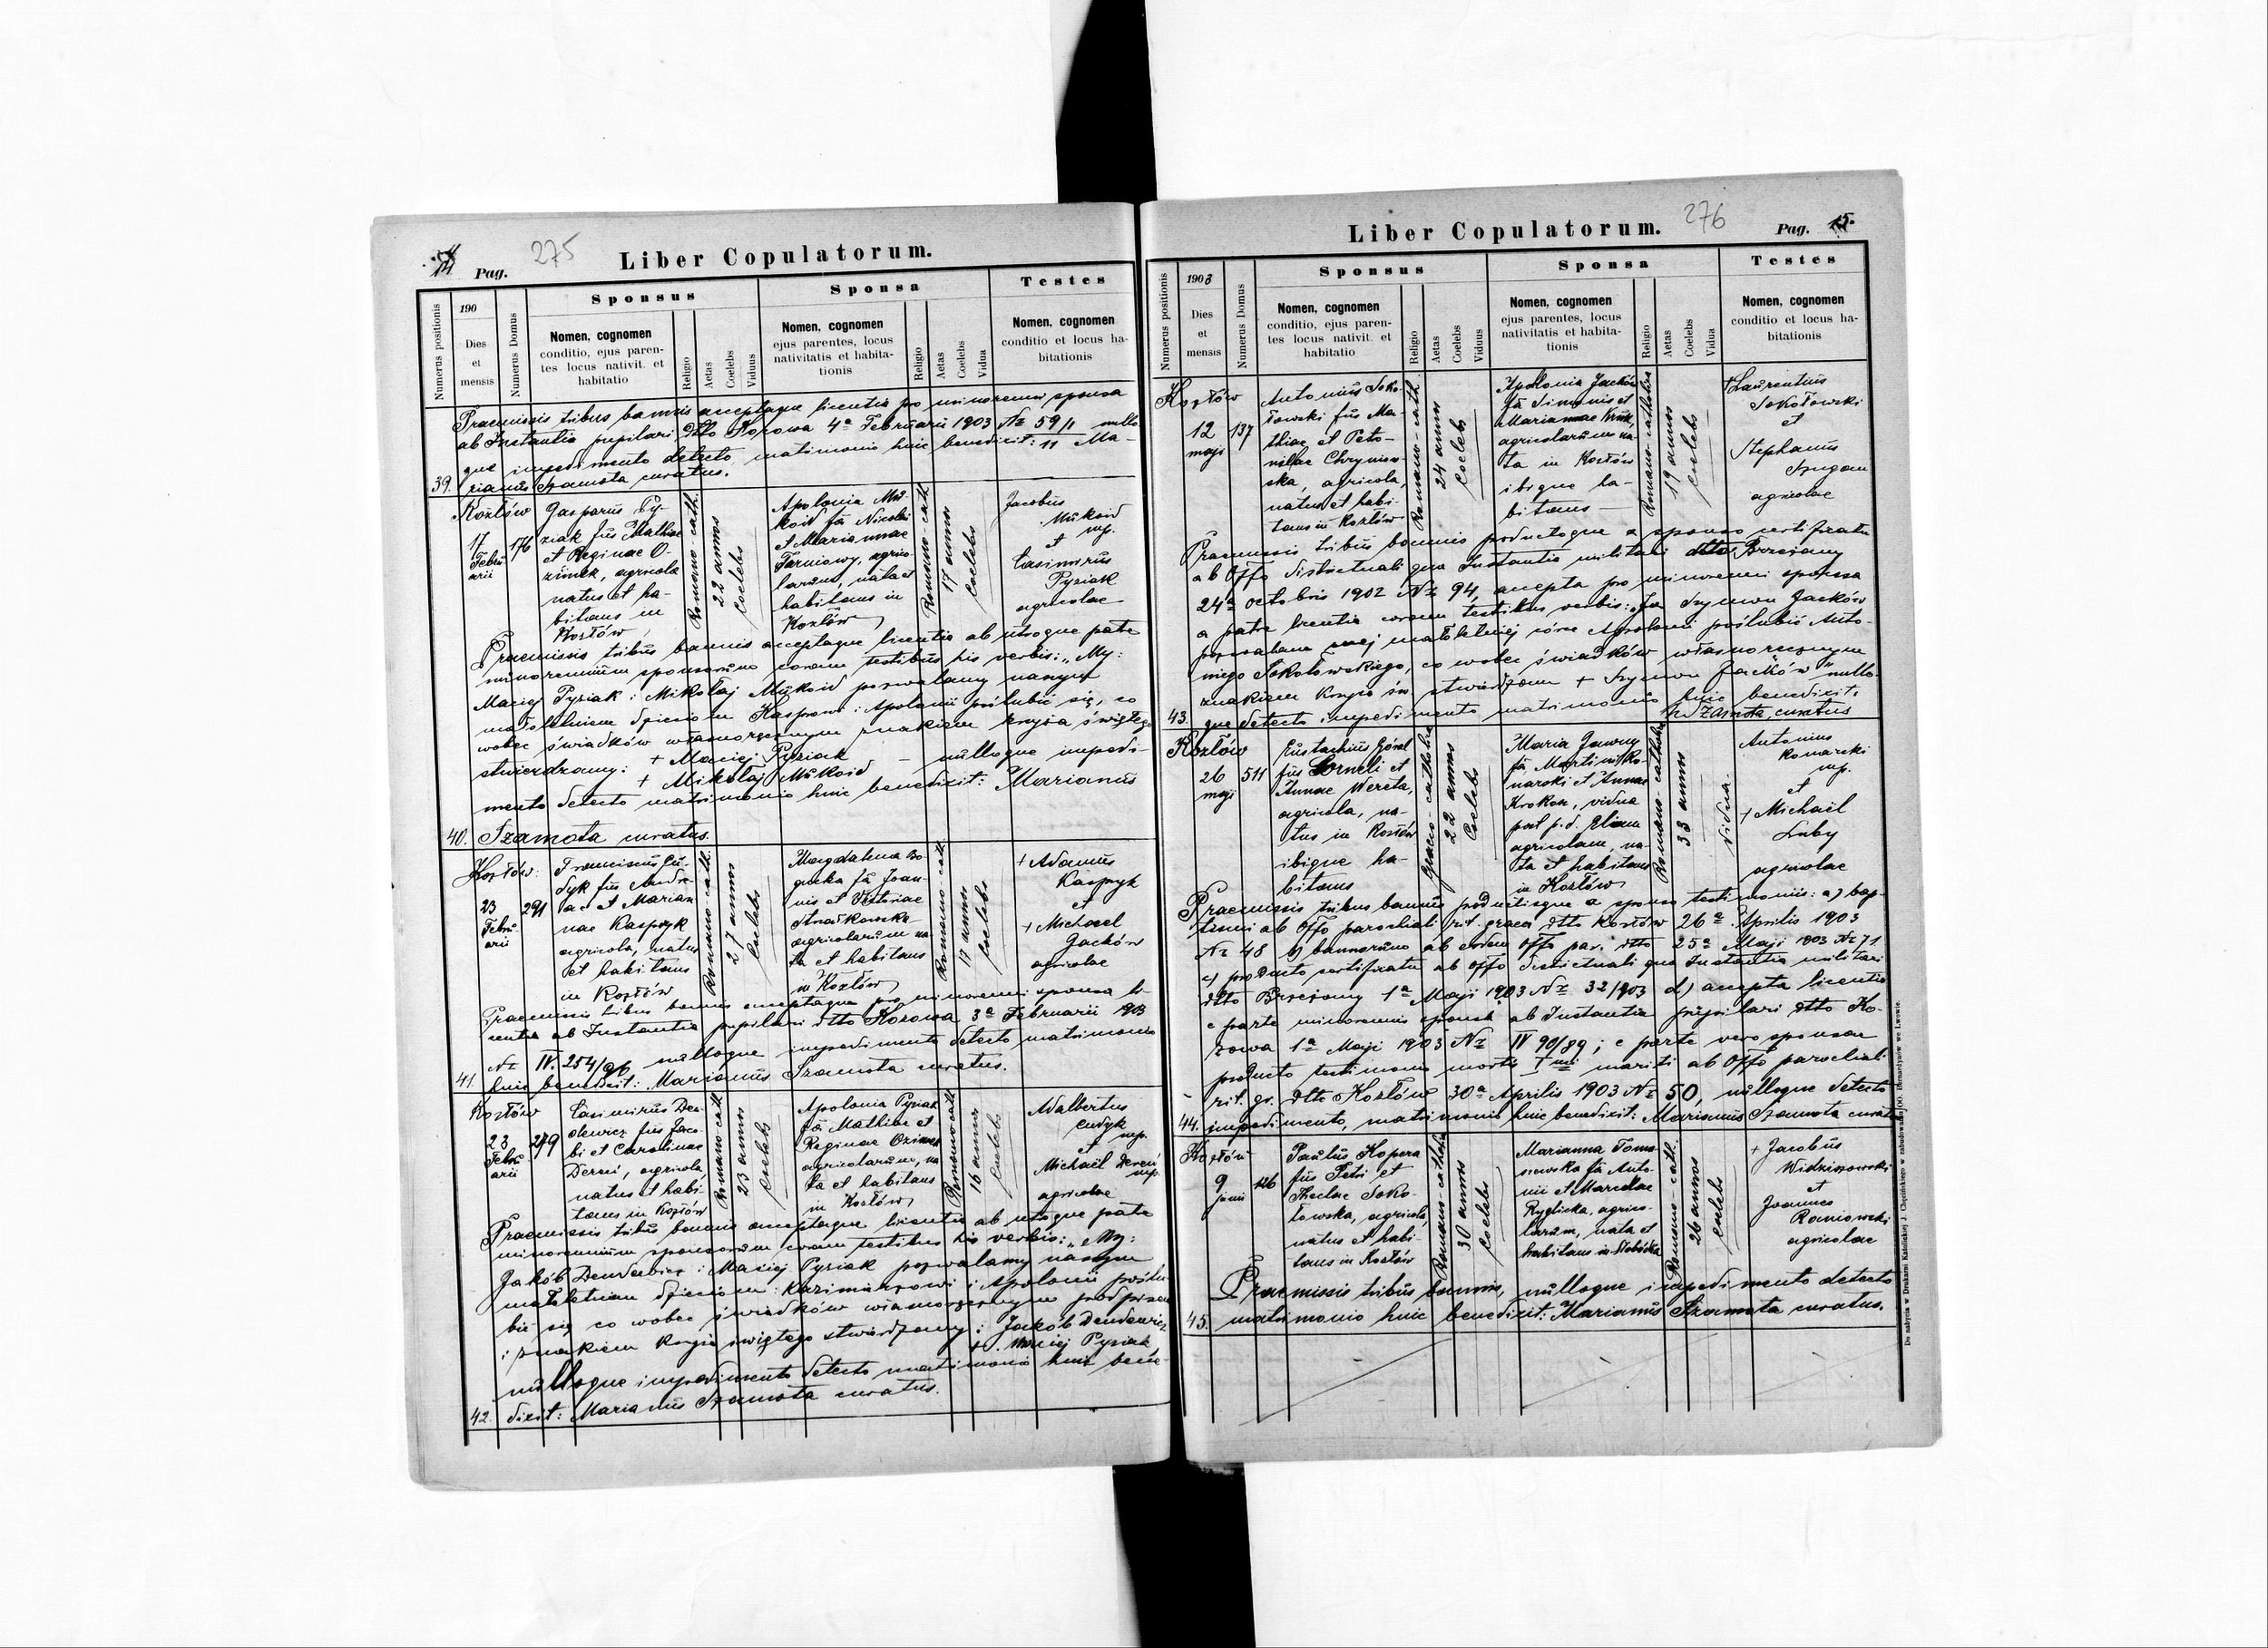 14 Pag. 275 Liber Copulatorum.
Numerus positionis
190
Dies
et
mensis
Numerus Domus
Sponsus
Nomen, cognomen
conditio, ejus paren-
tes locus nativit. et
habitatio
Religio
Aetas
Coelebs
Viduus
Sponsa
Nomen, cognomen
ejus parentes, locus
nativitatis et habita-
tionis
Religio
Aetas
Coelebs
Vidua
Testes
Nomen, cognomen
conditio et locus ha-
bitationis
Praemissis tribus bannis acceptaque licentia pro minorenni sponsa
ab Instantia pupilari dtto Kozowa 4a Februarii 1903 Nr 59/11 nullo
que impedimento detecto matrimonio huic benedixit: Ma-
39. rianus Szamota curatus.
Kozłów
17
Febru
arii
176
Gasparus Py-
ziak fus Mathiae
et Reginae O-
zimek, agricola
natus et ha-
bitans in
Kozłów
Romano cath.
22 annos
Coelebs
Apolonia Mu-
koid fa Nicolai
et Mariannae
Tarniowy, agrico-
larum, nata et
habitans in
Kozłów
Romano cath.
17 annos
Coelebs
Jacobus
Mukoid
mp.
et
Casimirus
Pyziak
agricolae
Praemissis tribus bannis acceptaque licentia ab utroque patre
minorennium sponsorum coram testibus his verbis: „My:
Maciej Pyziak i Mikołaj Mukoid pozwalamy naszym
małoletniem dzieciom Kasprowi i Apolonii poślubić się, co
wobec świadków własnoręcznym znakiem krzyża świętego
stwierdzamy: + Maciej Pyziak
+ Mikołaj Mukoid – nulloque impedi-
mento detecto matrimonio huic benedixit: Marianus
40. Szamota curatus.
Kozłów
23
Febru
arii
291
Franciscus Cu-
dyk fus Andre-
ae et Marian
nae Kasprzyk
agricola, natus
et habitans
in Kozłów
Romano-cath.
27 annos
Coelebs
Magdalena Bo-
gucka fa Joan-
nis et Victoriae
agricolarum na-
ta et habitans
in Kozłów
Romano-cath.
17 annos
Coelebs
+ Adamus
Kasprzyk
et
+ Michael
Jacków
agricolae
Praemissis tribus bannis acceptaque pro minorenni sponsa li-
centia ab Instantia pupilari dtto Kozowa 3a Februarii 1903
Nr IV. 254/96 nulloque impedimento detecto matrimonio
41. huic benedixit: Marianus Szamota curatus.
Kozłów
23
Febru
arii
279
Casimirus Den-
dewicz fus Jaco-
bi et Carolinae
Dereń, agricola,
natus et habi-
tans in Kozłów
Romano-cath.
23 annos
Coelebs
Apolonia Pyziak
fa Mathiae et
Reginae Ozimek
agricolarum, na
ta et habitans
in Kozłów
Romano-cath.
16 annos
Coelebs
Adalbertus
Cudyk
mp.
et
Michaël Dereń
mp.
agricolae
Praemissis tribus bannis acceptaque licentia ab utroque patre
minorennium sponsorum coram testibus his verbis: „My:
Jakób Dendewicz i Maciej Pyziak pozwalamy naszym
małoletnim dzieciom: Kazimierzowi i Apolonii poślu-
bić się co wobec świadków własnoręcznym podpisem
i znakiem krzyża świętego stwierdzamy: Jakób Dendewicz
+ Maciej Pyziak
nulloque impedimento detecto matrimonio huic bene-
42. dixit: Marianus Szamota curatus.
Liber Copulatorum. 276 Pag. 15.
Numerus positionis
1903
Dies
et
mensis
Numerus Domus
Sponsus
Nomen, cognomen
conditio, ejus paren-
tes locus nativit. et
habitatio
Religio
Aetas
Coelebs
Viduus
Sponsa
Nomen, cognomen
ejus parentes, locus
nativitatis et habita-
tionis
Religio
Aetas
Coelebs
Vidua
Testes
Nomen, cognomen
conditio et locus ha-
bitationis
Kozłów
12
maji
137
Antonius Soko-
łowski fus Ma-
thiae et Petro-
nilae Chrynow-
ska, agricola,
natus et habi-
tans in Kozłów
Romano-cath.
24 annos
Coelebs
Apolonia Jacków
fa Simonis et
Mariannae
agricolarum na-
ta in Kozłów
ibique ha-
bitans
Romano-catholica
19 annos
Coelebs
+ Laurentius
Sokołowski
et
Stephanus
agricolae
Praemissis tribus bannis productoque a sponso certificatu
ab Offo districtuali qua Instantia militari dtto Brzeżany
24a octobris 1902 Nr 94, accepta pro minorenni sponsa
a patre licentia coram testibus verbis: „Ja Szymon Jacków
pozwalam mej małoletniej córce Apolonii poślubić Anto-
niego Sokołowskiego, co wobec świadków własnoręcznym
znakiem krzyża św. stwierdzam + Szymon Jacków" nullo-
43. que detecto impedimento matrimonio huic benedixit:
Szamota curatus
Kozłów
26
maji
511
Eustachius Góral
fus Corneli et
Annae Wereta,
agricola, na-
tus in Kozłów
ibique ha-
bitans
Graeco-catholica
22 annos
Coelebs
Maria
fa Martini Ko-
narski et Annae
Krokos, vidua
post p.d. Eliam
agricolam, na-
ta et habitans
in Kozłów
Romano-catholica
33 annos
Vidua
Antonius
Konarski
mp.
et
+ Michaël
Luby
agricolae
Praemissis tribus bannis productisque a sponso testimoniis: a) bap-
tismi ab Offo parochiali rit. graeci dtto Kozłów 26a Aprilis 1903
Nr 48 b) bannorum ab eodem Offo par. dtto 25a Maji 1903 Nr 71
c) producto certificatu ab Offo districtuali qua Instantia militari
dtto Brzeżany 1a Maji 1903 Nr 32/903 d) accepta licentia
e parte minorennis sponsi ab Instantia pupilari dtto Ko-
zowa 1a Maji 1903 Nr IV 90/89; e parte vero sponsae
producto testimonio mortis I mi mariti ab Offo parochiali
rit. gr. dtto Kozłów 30a Aprilis 1903 Nr 50, nulloque detecto
44. impedimento, matrimonio huic benedixit: Marianus Szamota curatus
Kozłów
9
junii
126
Paulus Kopera
fus Petri et
Theclae Soko-
łowska, agricola,
natus et habi-
tans in Kozłów
Romano-cathol.
30 annos
Coelebs
Marianna Toma-
szewska fa Anto-
nii et Marcelae
Ryglicka, agrico-
larum, nata et
habitans in Słobódka
Romano-cath.
26 annos
Coelebs
+ Jacobus
Widziszowski
et
Joannes
Romiowski
agricolae
Praemissis tribus bannis, nulloque impedimento detecto
45. matrimonio huic benedixit: Marianus Szamota curatus.
Do nabycia w Drukarni Katolickiej J. Chęcińskiego w zabudowaniu OO. Bernardynów we Lwowie.